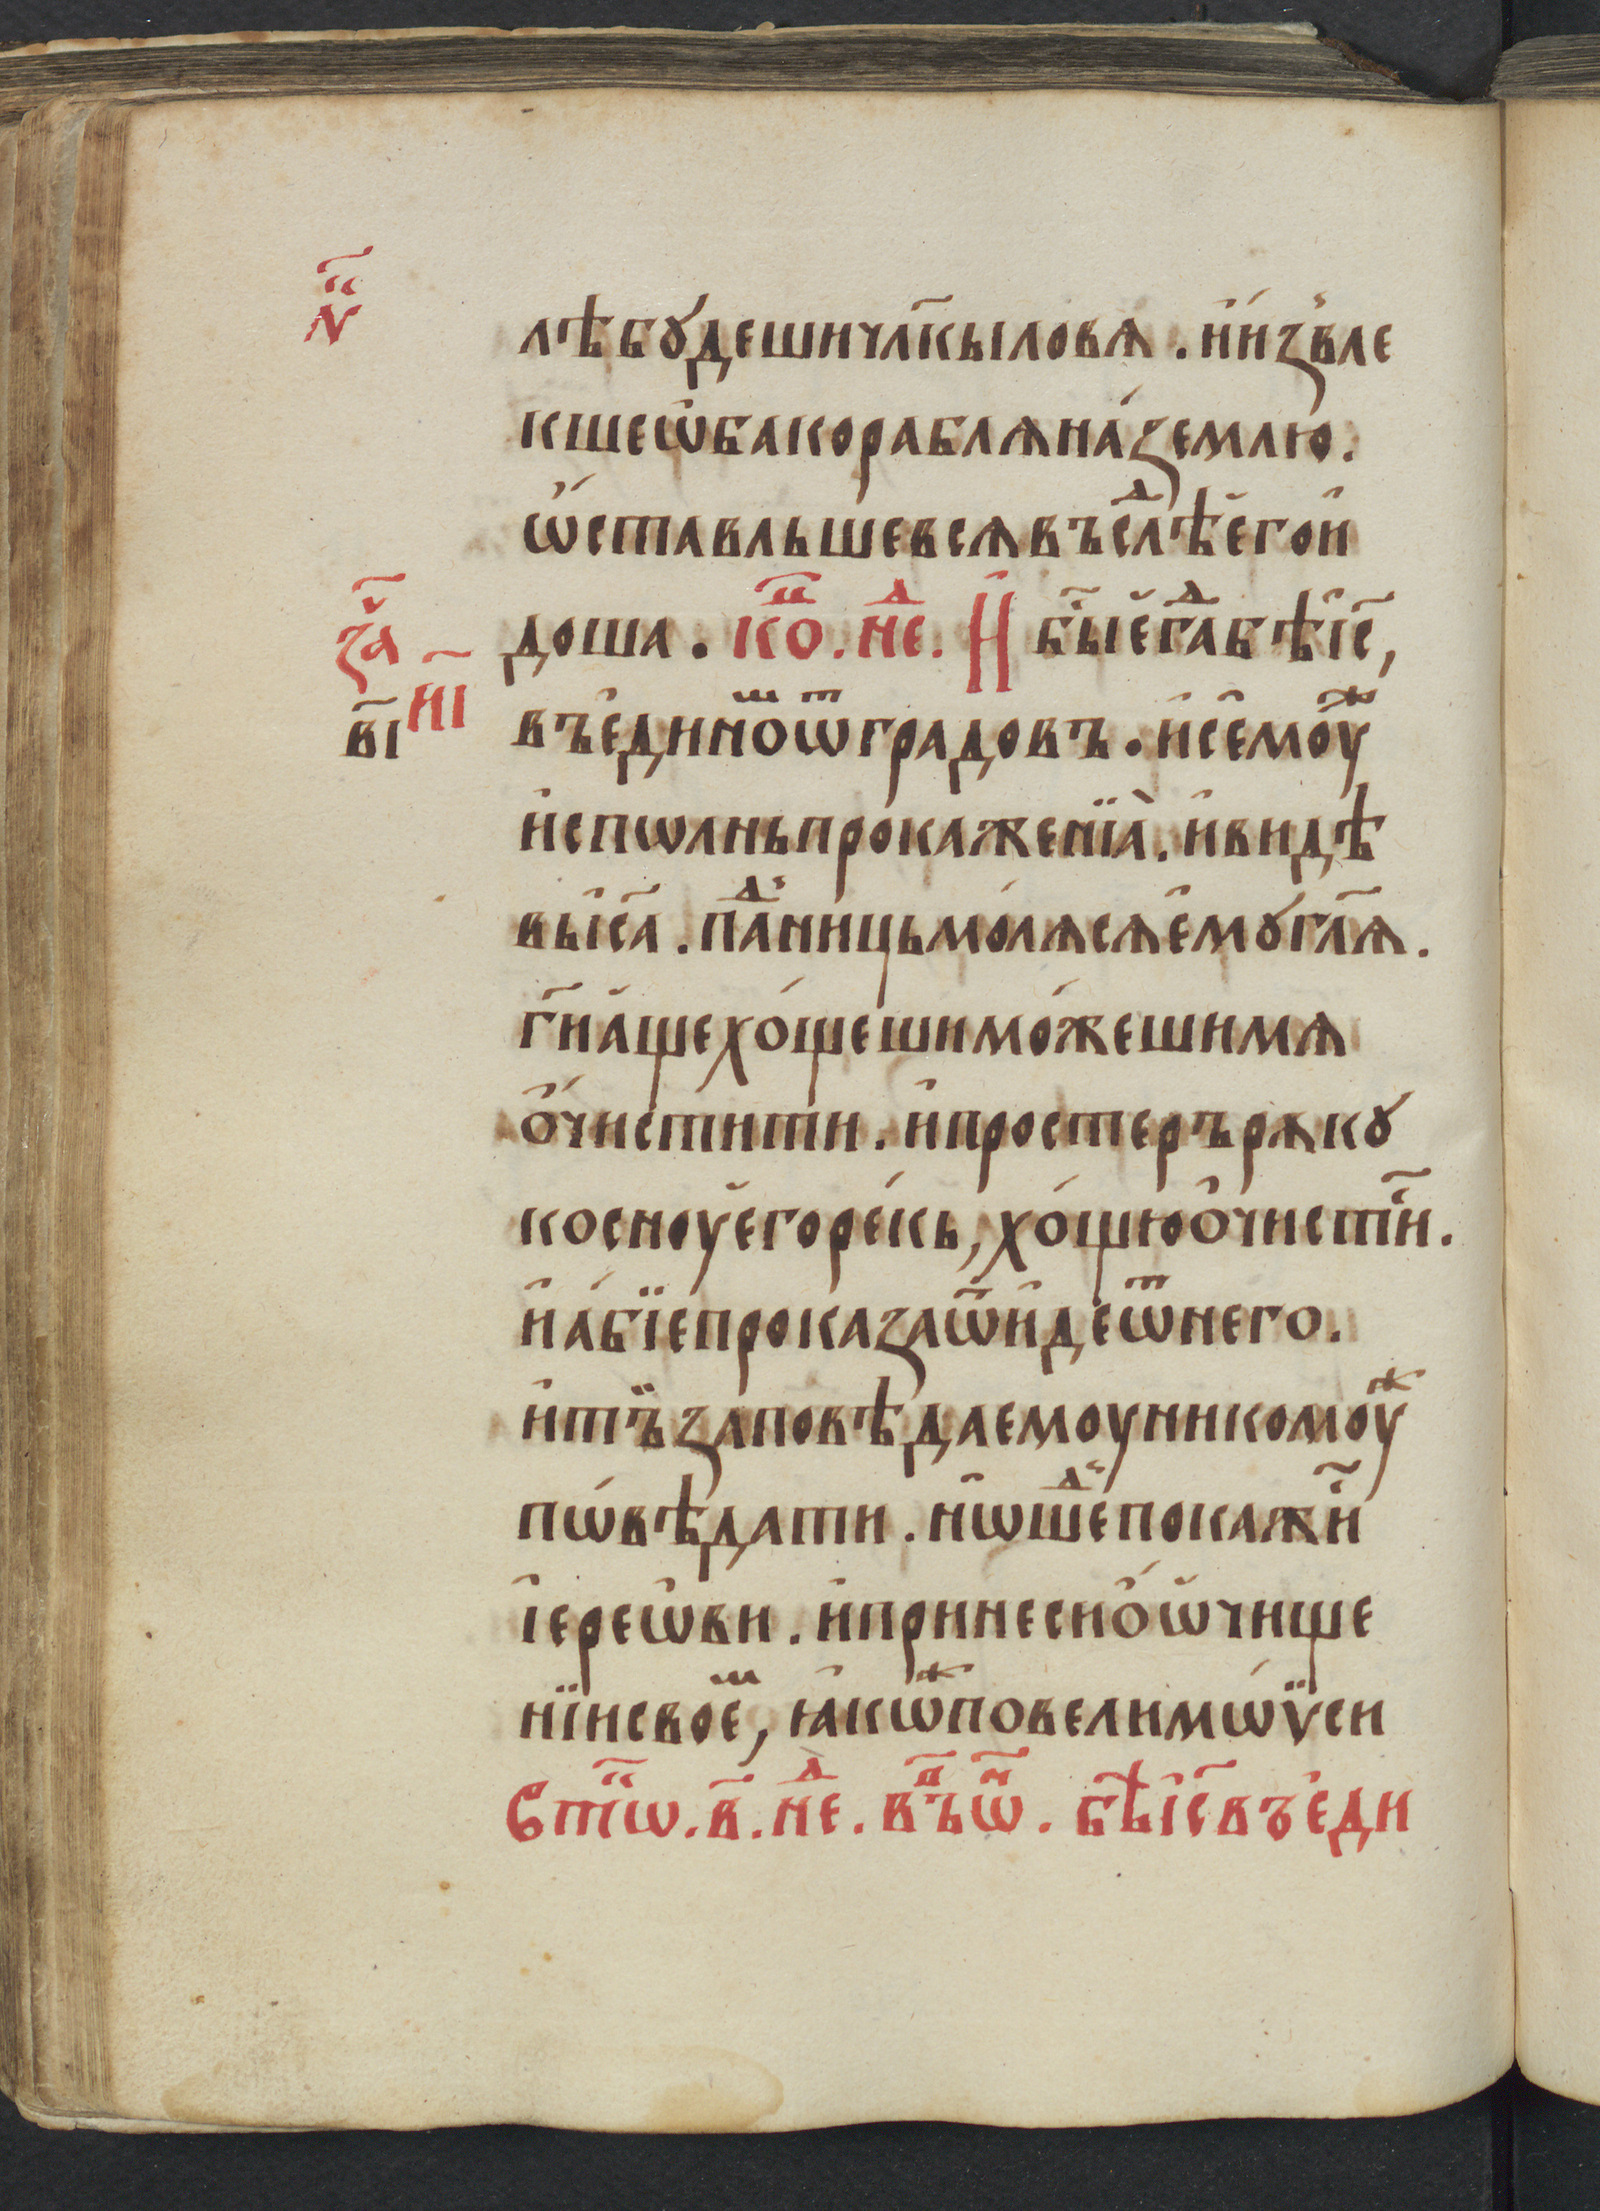 н҃
лѣбꙋдешичл҃кыловѧ. и҆и҆звле
кшеѡ҆бакораблѧна́землю.
ѡ҆ставльшевсѧвъслⷣѣє҆гои҆
доша. коⷰ҇. неⷣ. И҆ бы҃є҆гдⷣабѣі҆с҃,
за҃ н҃і
в҃і
въе҆диномⷨѿградовъ. и҆се҆моу҆ⷤ
и҆спѡлньпрокаженїѧ̀. и҆видѣ
вы҆іс҃а. паⷣницьмо́лѧсѧе҆мꙋгл҃ѧ.
г҃иа҆́щехо́щешимо́жешимѧ
ѻ҆чистити. и҆простеръроукꙋ
косноуе҆горе́кь, хо́щюѻ҆чисти҃.
и҆а҆́бїепроказаѿи҆деѿнего.
и҆тъ̈заповѣдаемоуникомоу҆ⷤ
пѡвѣдати. нѡ҆шеⷣпокажи҆
і҆ерео҆ви. и҆принесиѻ҆ѡ҆чище
нїисвоеⷨ, ꙗ҆кѡⷤповелимѡѷси
Стⷯѡ. в҃. неⷣ. въⷫѿ. бѣ҃і҆с҃въе҆ди